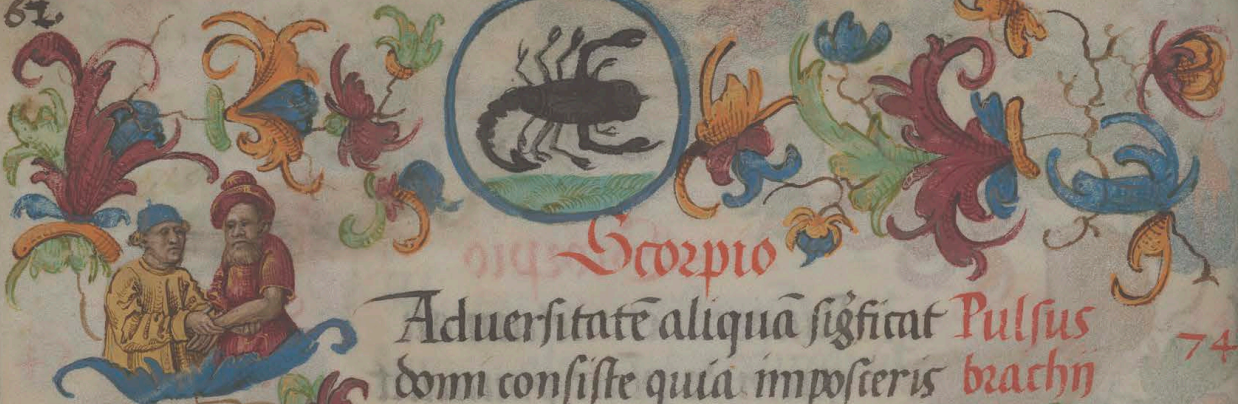 62.
Scorpio
Aduersitatē aliquā sigͥficat Pulsus
domi consiste quia imposceris brachij
74